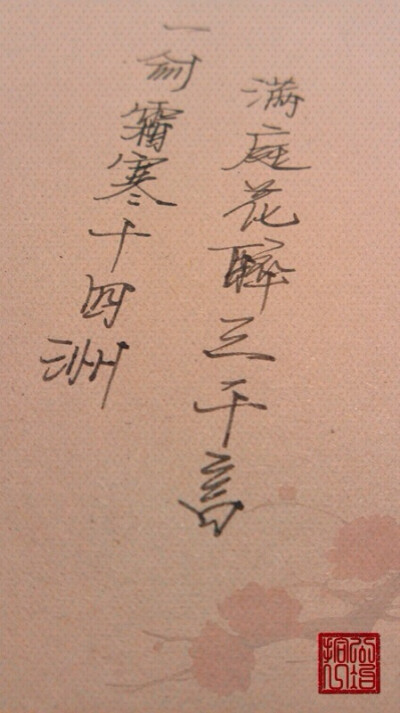 满庭花醉三千
一剑霜寒十四洲